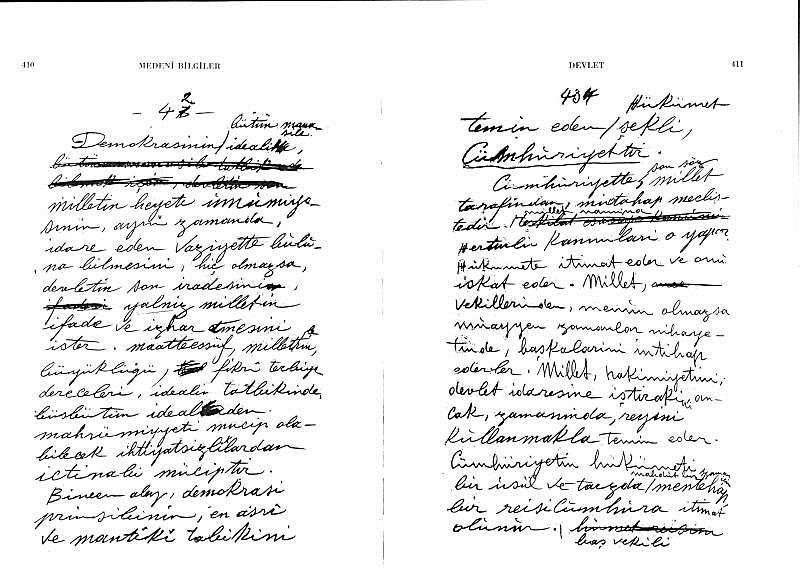 410 MEDENİ BİLGİLER
- 42 -
bütün mana-
sile
Demokrasinin / ideali,
milletin heyeti umumiye-
sinin, ayni zamanda,
idare eden vaziyette bulu-
na bilmesini, hiç olmazsa,
devletin son iradesini,
yalnız milletin
ifade ve izhar etmesini
ister. maatteessüf, milletin,
büyüklüğü, fikri terbiye
dereceleri, idealin tatbikinde,
büsbütün idealden
mahrumiyyeti mucip ola-
bilecek ihtiyatsızlıklardan
ictinabı muciptir.
Binaen aley, demokrasi
prinsibinin, en asri
ve mantiki tatbikini
DEVLET 411
43
Hükümet
temin eden / şekli,
Cümhuriyettir.
son söz
Cümhuriyette, millet
tarafından, müntahap meclis-
tedir. millet namına
Hertürlü kanunlari o yapar
Hükumete itimat eder ve onu
iskat eder. Millet,
vekillerinden, memnun olmazsa
muayyen zamanlar nihaye-
tinde, başkalarini intihap
ederler. Millet, hakimiyetini,
devlet idaresine iştirakini, an-
cak, zamanında, reyini
kullanmakla temin eder.
Cümhuriyetin hükumeti
mahdut bir zaman
bir usul ve tarzda / mentehap
bir reisicumhura itimat
olunur. /
baş vekili